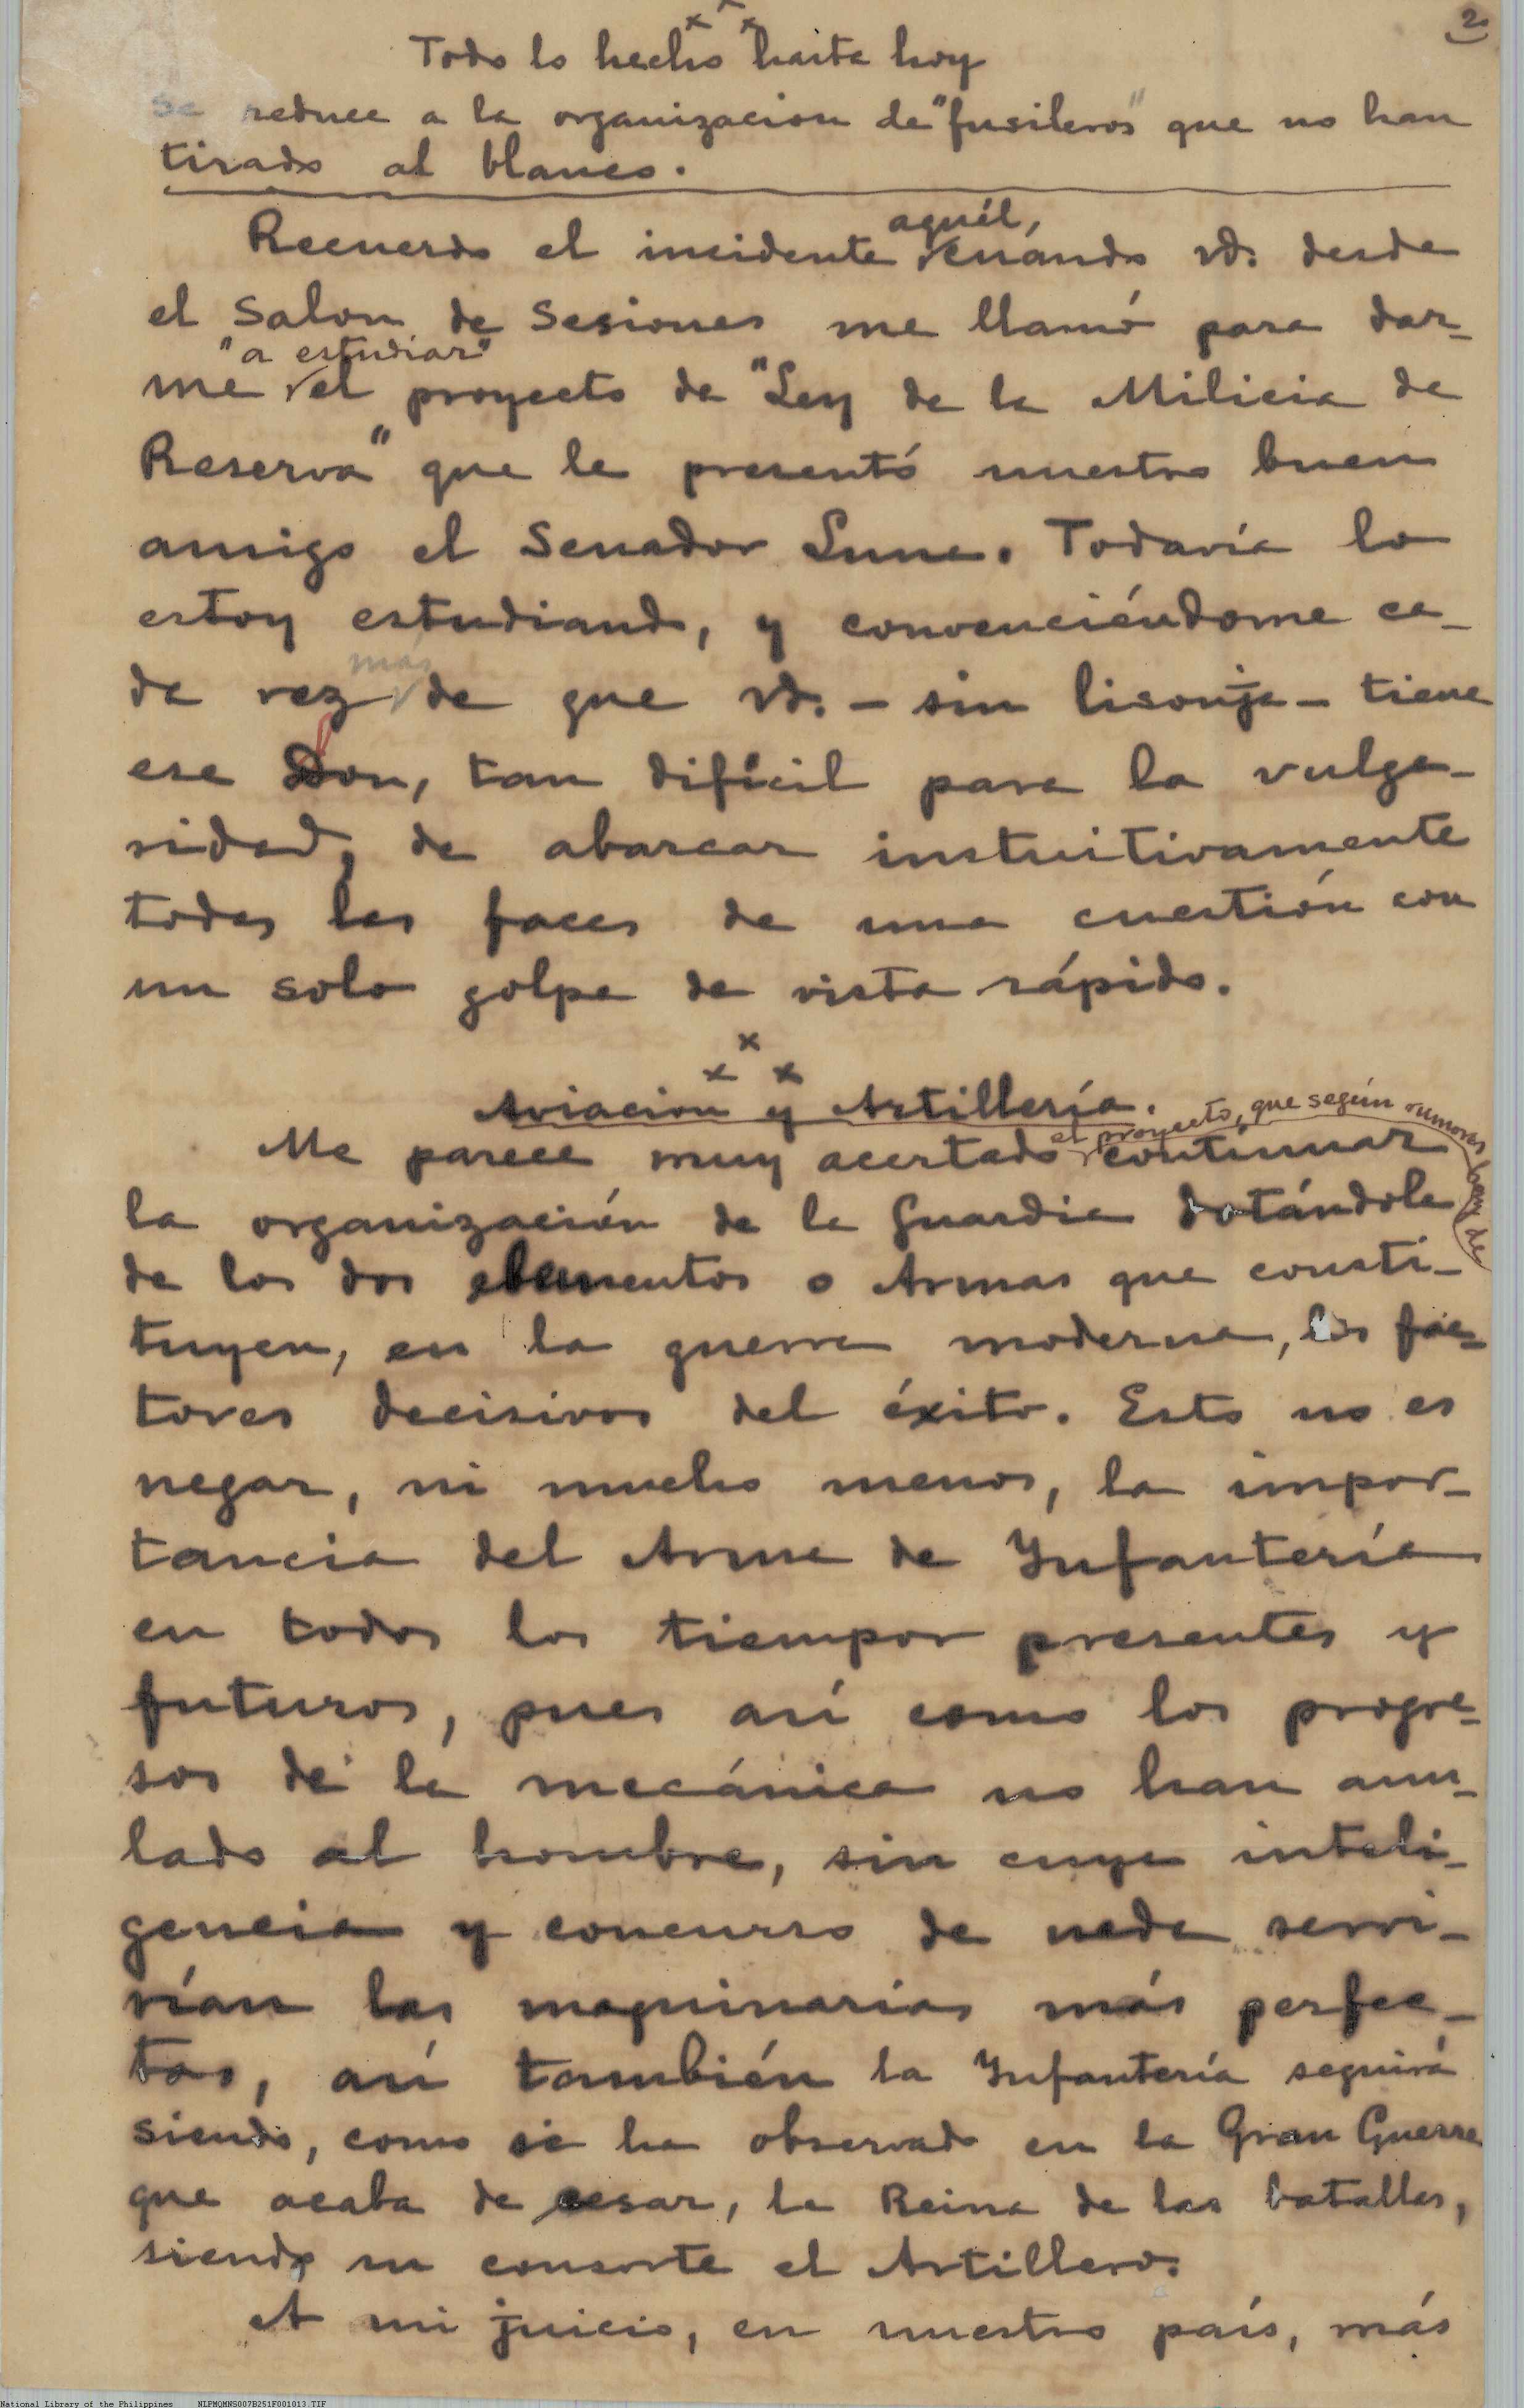 2
x x x
Todo lo hecho hasta hoy
se reduce a la organizacion de "fusileros" que no han
tirado al blanco.
aquél,
Recuerdo el incidente cuando vd. desde
el Salon de Sesiones me llamó para dar-
"a estudiar"
me el proyecto de "Ley de la Milicia de
Reserva" que le presentó nuestro buen
amigo el Senador Luna. Todavía lo
estoy estudiando, y convenciéndome ca-
más
da vez de que vd. - sin lisonja - tiene
ese Don, tan difícil para la vulga-
ridad, de abarcar instuitivamente
todas las faces de una cuestión con
un solo golpe de vista rápido.
x x x
Aviacion y Artillería.
el proyecto, que según rumores, han de
Me parece muy acertado continuar
la organización de la Guardia dotándola
de los dos elementos o Armas que consti-
tuyen, en la guerra moderna, los fac-
tores decisivos del éxito. Esto no es
negar, ni mucho menos, la impor-
tancia del Arma de Infantería
en todos los tiempos presentes y
futuros, pues así como los progre-
sos de la mecánica no han anu-
lado al hombre, sin cuya inteli-
gencia y concurso de nada servi-
rían las maquinarias más perfec-
tas, así también la Infantería seguirá
siendo, como se ha observado en la Gran Guerra
que acaba de cesar, la Reina de las batallas,
siendo su consorte el Artillero.
A mi juicio, en nuestro país, más
National Library of the Philippines NLPMQMNS007B251F001013.TIF